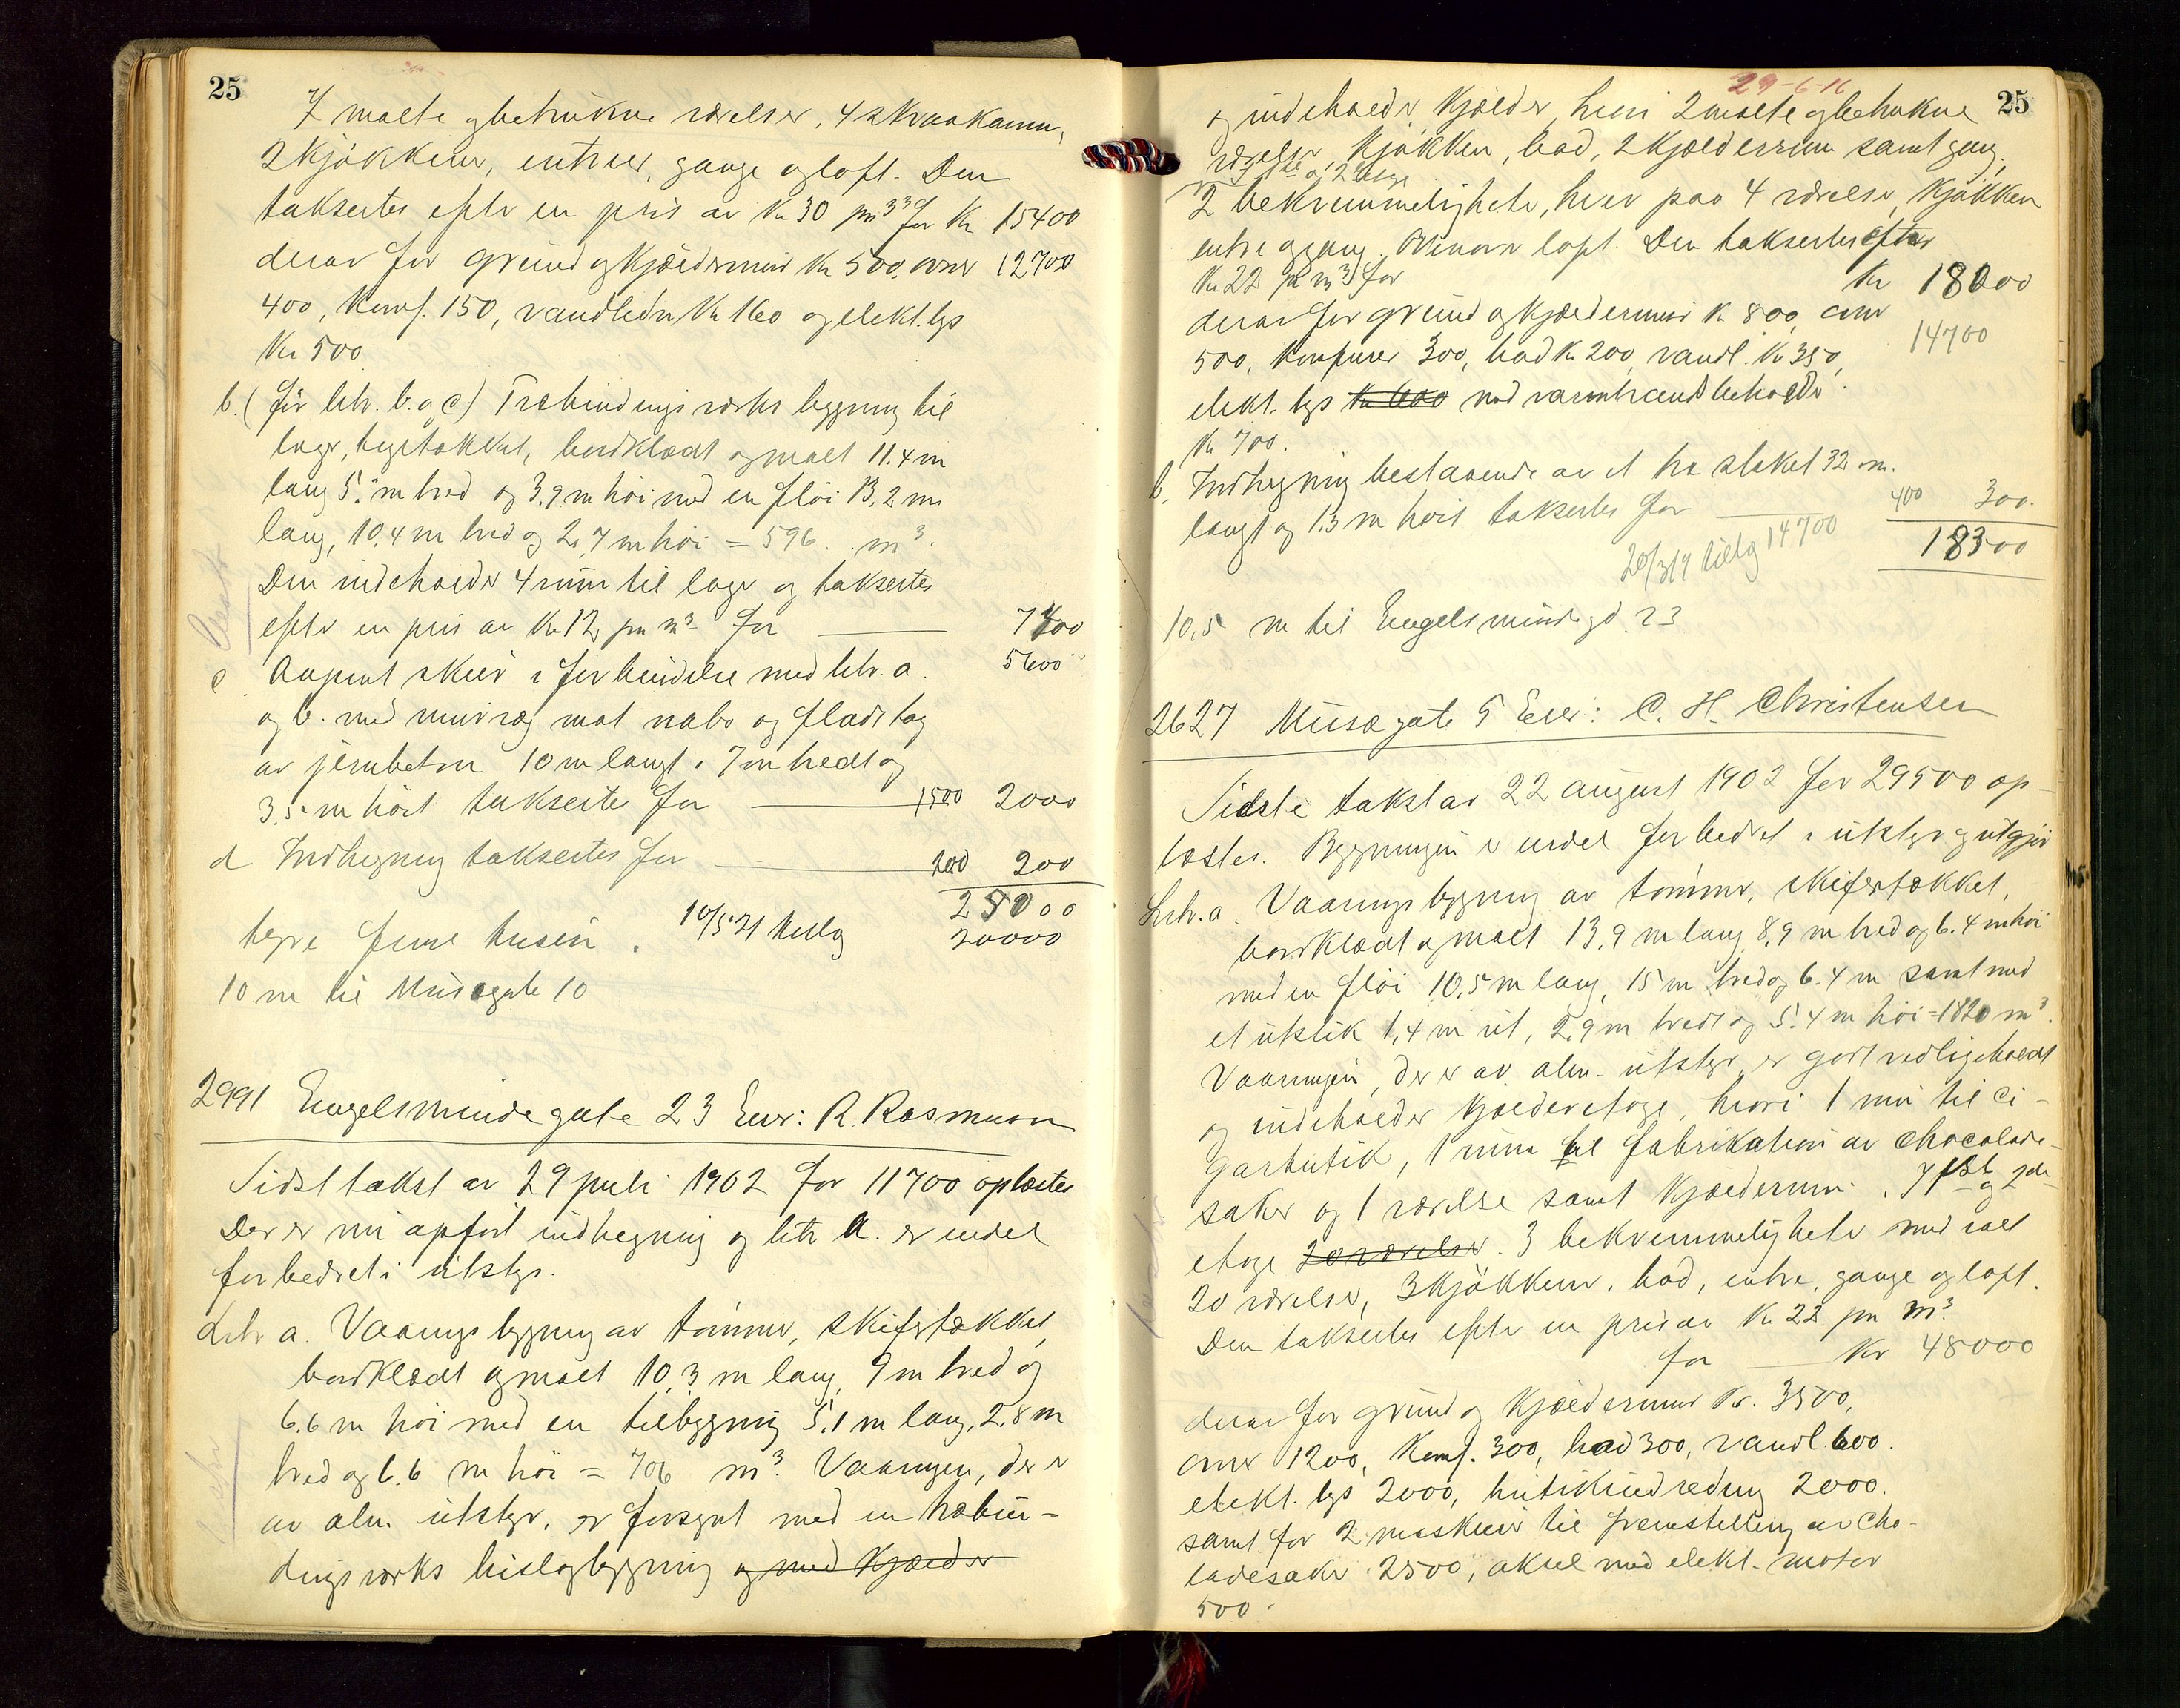 25
7 malte og betrukne værelser, 4 skraakamre,
2 kjøkkener, entreer, gange og loft. Den
taksertes efter en pris av Kr 30 pr m³ for Kr 15400
derav for grund og kjældermur Kr 500, ovner 12700
400, Komf. 150, vandledn. Kr 160 og elekt. lys
Kr 500
b. (før litr. b. og c) Træbindingsverks bygning til
lager, teglstækket, bordklædt og malt 11.4 m
lang 5. m bred og 3.9 m høi med en fløi 13.2 m
lang, 10.4 m bred og 2.7 m høi = 596 m³.
Den indeholder 4 rum til lager og taksertes
efter en pris av Kr 12 pr m³ for 7400
5600
c Aapent skur i forbindelse med litr. a.
og b. med murvæg mot nabo og fladt tag
av jernbeton 10 m langt, 7 m bredt og
3.5 m høit taksertes for 1500 2000
d Indhegning taksertes for 200 200
25000
10/5 21 tillæg 20000
10 m til Musegate 10
2991 Engelsmindegate 23 Eier: R. Rasmussen
Sidst takst av 29 juli 1902 for 11700 oplæstes
Der er nu opført indhegning og litr a. er endel
forbedret i utstyr.
Litr a. Vaaningsbygning av tømmer, skifertækket,
bordklædt og malt 10,3 m lang, 9 m bred og
6.6 m høi med en tilbygning 5.1 m lang, 2.8 m
bred og 6.6 m høi = 706 m³. Vaaningen, der er
av alm. utstyr, er forsynt med en træbin-
dingsverks bislagbygning og med kjælder
29-6-16
25
og indeholder kjælder, hvori 2 malte og betrukne
værelser, kjøkken, bad, 2 kjælderrum samt gang,
I 1ste og 2den etage
2 bekvemmeligheter, hver paa 4 værelser, kjøkken
entre og gang. Ovenover loft. Den taksertes efter
Kr 22 pr m³ for Kr 18000
derav for grund og kjældermur Kr 800, ovner
14700
500, komfurer 300, bad Kr 200, vandl. Kr 350,
elekt. lys Kr 600 med varmtvandsbeholder
Kr 700.
b. Indhegning bestaaende av et træ stakit 32 m.
langt og 1.3 m høit taksertes for 400 300.
18300
20/3 19 tillæg 14700
10,5 m til Engelsmindegd. 23
2627 Musægate 5 Eier: C. H. Christensen
Sidste takst av 22 august 1902 for 29500 op-
læstes. Bygningen er endel forbedret i utstyr og utgjør
Litr. a. Vaaningsbygning av tømmer, skifertækket,
bordklædt og malt 13.9 m lang, 8.9 m bred og 6.4 m høi
med en fløi 10.5 m lang, 15 m bred og 6.4 m samt med
et utstik 1,4 m ut, 2.9 m bredt og 5.4 m høi = 1820 m³.
Vaaningen, der er av alm. utstyr, er godt vedligeholdt
og indeholder kjælderetage, hvori 1 rum til ci-
garbutik, 1 rum til fabrikation av chocolade-
saker og 1 værelse samt kjælderrum. I 1ste og 2den
etage 20 værelser. 3 bekvemmeligheter med ialt
20 værelser, 3 kjøkkener, bad, entre, gange og loft.
Den taksertes efter en pris av Kr 22 pr m³
for Kr 48000
derav for grund og kjældermur Kr. 3500,
ovner 1200, Komf. 300, bad 300, vandl. 600.
elekt. lys 2000, butikindredning 2000.
samt for 2 maskiner til fremstilling av cho-
ladesaker 2500, aksel med elekt. motor
500.